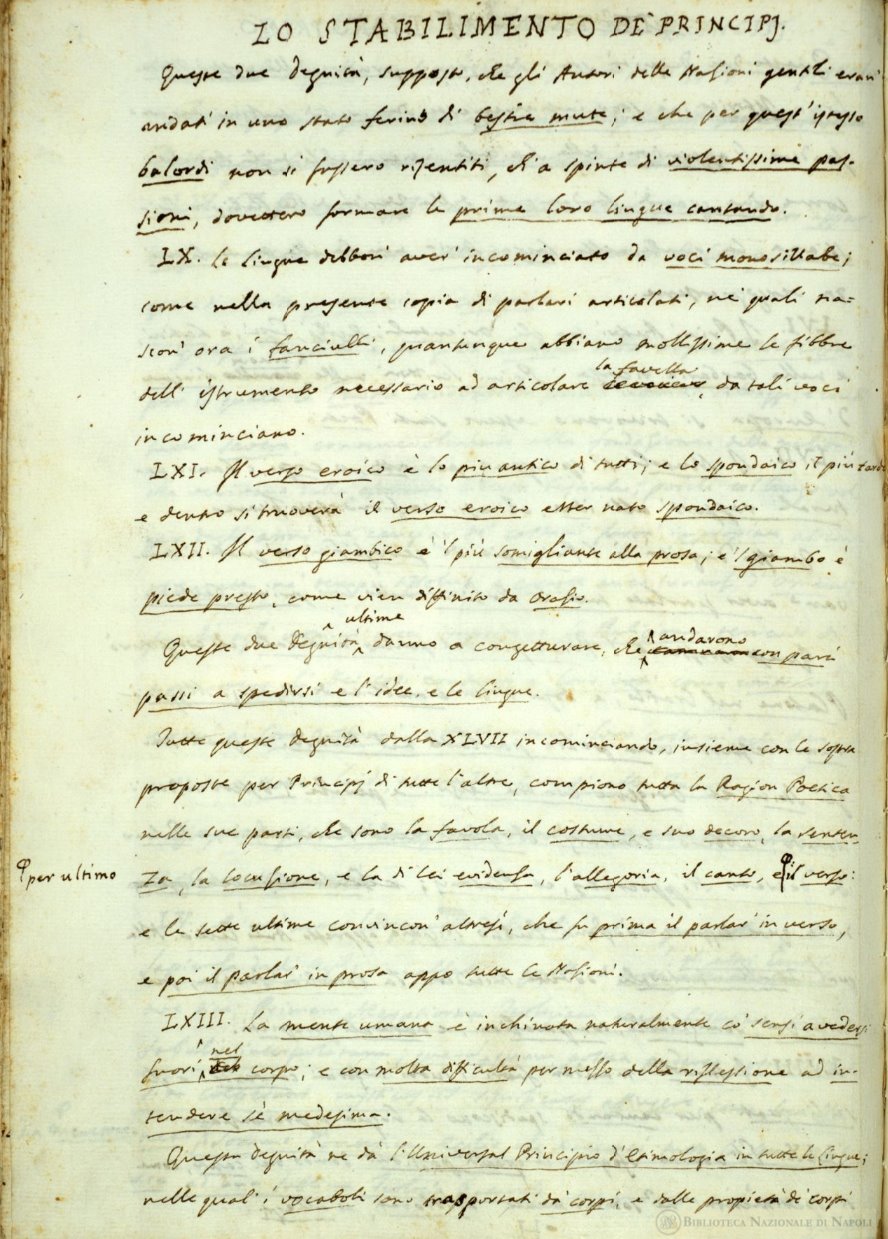 LO STABILIMENTO DE' PRINCIPJ.
Queste due Degnità, supposto, che gli Autori delle Nazioni gentili eran'
andati in uno stato ferino di bestie mute; e che per quest'istesso
balordi non si fussero risentiti, ch'a spinte di violentissime pas-
sioni, dovettero formare le prime loro lingue cantando.
LX. Le lingue debbon' aver' incominciato da voci monosillabe;
come nella presente copia di parlari articolati, ne' quali na-
scon' ora i fanciulli, quantunque abbiano mollissime le fibbre
la favella
dell' istrumento necessario ad articolare, da tali voci
incominciano.
LXI. Il verso eroico è lo più antico di tutti; e lo spondaico il più tardo
e dentro si truoverà il verso eroico esser nato spondaico.
LXII. Il verso giambico è 'l più somigliante alla prosa; e 'l giambo è
piede presto, come vien diffinito da Orazio.
ultime
andarono
Queste due Degnità danno a congetturare, che con pari
passi a spedirsi e l'idee, e le lingue.
Tutte queste Degnità dalla XLVII incominciando, insieme con le sopra
proposte per Principj di tutte l'altre, compiono tutta la Ragion Poetica
nelle sue parti, che sono la favola, il costume, e suo decoro, la senten-
per ultimo
za, la locuzione, e la di lei evidenza, l'allegoria, il canto, e il verso:
e le sette ultime convincon' altresì, che fu prima il parlar' in verso,
e poi il parlar' in prosa appo tutte le Nazioni.
LXIII. La mente umana è inchinata naturalmente co' sensi a vedersi
nel
fuori corpo; e con molta difficultà per mezzo della riflessione ad in-
tendere sè medesima.
Questa Degnità ne dà l'Universal Principio d'Etimologia in tutte le Lingue;
nelle qual' i vocaboli sono trasportati da' corpi, e dalle propietà de' corpi
BIBLIOTECA NAZIONALE DI NAPOLI